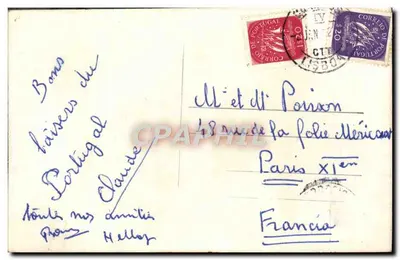 Bons
baisers du
Portugal
Claude
toutes nos amitiés
M et Mme Poisson
48 rue de la folie Méricourt
Paris XI em
Francia
CORREIO DE PORTUGAL
CORREIO DE PORTUGAL
LISBOA
CPAPHIL